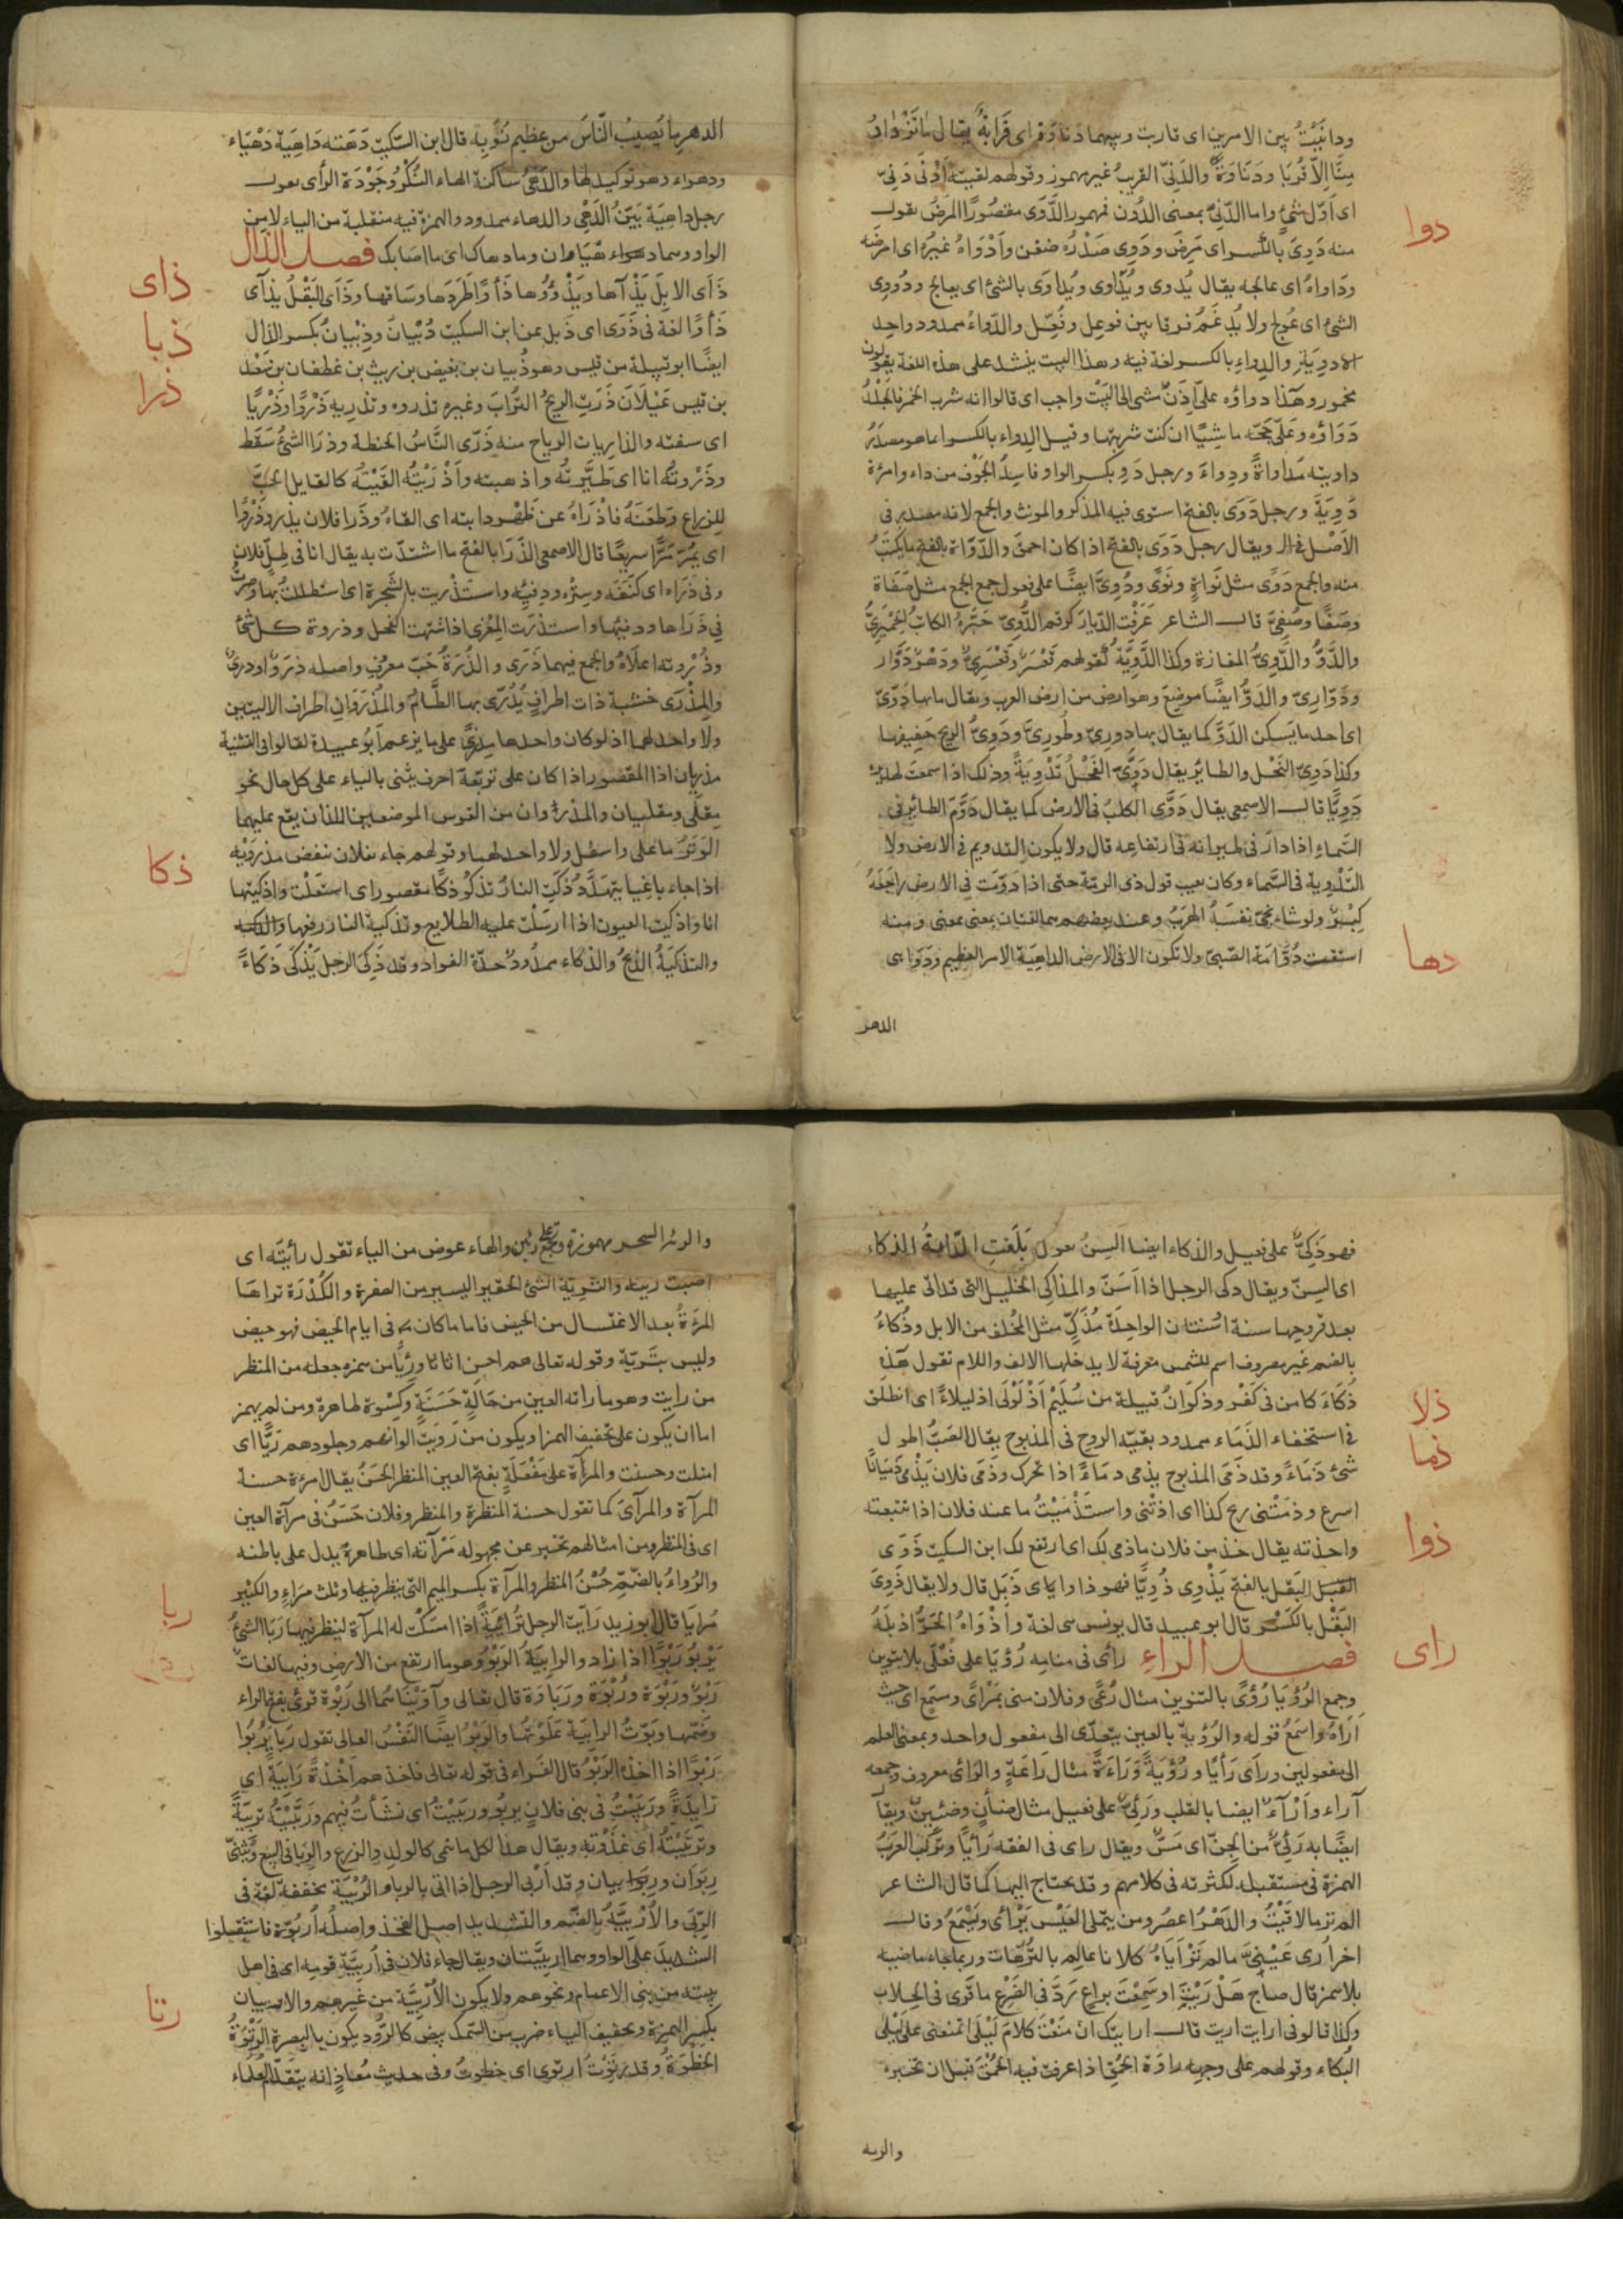 ودانَيْتُ بين الامرين اى قاربت وبينهما دناوة اى قَرابَةٌ يقال ما تَزْدادُ
مِنَّا اِلّا قُربًا ودَنَاوَةً والدَنِيّ القريبُ غير مهموز وقولهم لقيته اَدْنَى دَنِىّ
اى اَوّل شئ واما الدّنِىّ بمعنى الدُون فمهموز الدَّوَى مقصُورًا المرَضُ تقول
دوا
منه دَوِىَ بالكسر اى مَرِضَ ودَوِى صَدْرُه ضغن واَدْوَاهُ غيرُه اى امرَضَه
ودَاواهُ اى عالجه يقال يُدوى ويُدَاوى ويُداوَى بالشئ اى يعالج ودُووِى
الشئ اى عُولج ولا يُدغَمُ فرقا بين فوعِل وفُعِّل والدّواءُ ممدود واحد
الادوِيَة والدِواء بالكسر لغة فيه وهذا البيت ينشد على هذه اللغة يقولون
مخمور وهَذا دواؤه علىّ اِذَنْ مشى الى البَيْت واجب اى قالوا انه شرب الخمر فالجَلْدُ
دَوَاؤه وعَلىّ حَجّة ماشِيًا ان كنت شربتها وقيل الدِواء بالكسر انما هو مصدَرُ
داويته مُدَاواةً ودِواءً ورجل دَوٍ بكسر الواو فاسِدُ الجَوْف من داء وامرأة
دَوِيَةٌ ورجل دَوَى بالفتح استوى فيه المذكر والمونث والجمع لانه مصدر فى
الأصْل ويقال رجل دَوَى بالفتح اذا كان احمقَ والدّوَاة بالفتح ما يكتَبُ
منه والجمع دَوًى مثل نَواةٍ ونَوًى ودُوِىٌّ ايضًا على فعول جمع الجمع مثل صَفَاة
وصَفًا وصُفِىّ قال الشاعر عَرَفْت الدّيارَ كرَقم الدُّوِىّ حَبَّرَهُ الكاتبُ الحِمْيَرِىُّ
والدَّوُّ والدَّوِىُّ المفازة وكذا الدَّوِيَّةُ كقولهم قَعْسَرٌ وقَعْسَرِىٌّ ودَهْرٌ دَوَّار
ودَوّارِىّ والدَوُّ ايضًا موضِعٌ وهو ارض من ارض العرب ويقال ما بها دَوِّىّ
اى احد ما يَسكن الدَوَّ كما يقال بها دُورِىٌّ وطُورِىٌّ ودَوِىُّ الريح حَفِيفها
وكذا دَوِىّ النَحْل والطائر يقال دَوَّى الفَحْلُ تَدْوِيَةً وذلك اذا سمعتَ لهديره
دَوِيًّا قال الاصمعى يقال دَوَّى الكلبُ فى الارض كما يقال دَوَّمَ الطائر فى
السَّماءِ اذا دارَ فى طيرانه فى ارتفاعِه قال ولا يكون التدويم فى الارض ولا
التَدْوِيةِ فى السَّماء وكان يعيب قول ذى الرمّة حتى اذا دَوّمَت فى الارض راجَعَهُ
كِبْرٌ ولو شاءَ نجّى نفسَهُ الهَرَبُ وعند بعضهم هما لغتان بمعنى بمعنى ومنه
دها
اشتقت دُوَّامَة الصّبىّ ولا تكون الا فى الارض الداهِيَة الامر العظيم ودَوَاهى
الدهر
الدهر ما يُصيبُ النّاسَ من عظيم نُوَبِه قال ابن السّكيت دَهَتْه دَاهِيَة دَهْيَاء
ودهواء وهو توكيد لها والدَهْىُ ساكنة الهاء النُكْرُ وجَوْدَة الرأى تقول
رجل داهِيَة بَيّنُ الدَهْىِ والدهاء ممدود والهمزة فيه منقلبة من الياء لا من
الواو وهما دهياوان وما دهاك اى ما اصَابك فصل الذال
ذاى
ذَأَى الابِلَ يَذْآها ويَذْؤُوها ذَأْوًا طَرَدَها وسَاقها وذَأى البَقْلُ يذأى
ذبا
ذَأوًا لغة فى ذَوَى اى ذَبل عن ابن السكيت ذُبْيانَ وذِبْيانُ بكسر الذال
ايضًا ابو قبيلة من قيس وهو ذُبيان بن بغيض بن ريث بن غطفان بن سَعْد
ذرا
بن قيس عَيْلَان ذَرَتِ الريحُ التُرابَ وغيره تذروه وتذريه ذَرْوًا وذَرْيًا
اى سفته والذاريات الرياح منه ذَرّى النّاسُ الحنطة وذرَا الشئُ سَقَط
وذَرْوتُه انا اى طَيَّرتُه واذهبته واَذْرَيْتُه القَيْتُه كالقايل الحَبَّ
للزِراعِ وطعَنَهُ فاَذْرَاهُ عن ظَهْرِ دابته اى القاهُ وذَرا فلان يذرو ذَرْوًا
اى يمُرّ مَرًّا سريعًا قال الاصمعى الذَرَا بالفتح ما استترت به يقال انا فى ظِلّ فلان
وفى ذَرَاه اى كنَفَه وسِتْره ودِفئِه واستَذْريت بالشَجرة اى استظللتُ بها وصرتُ
فى ذَرَاها ودفئها واستَذرَت المِعْزى اذا اشتهت الفحل وذروة كل شئ
وذُرْوته اعلاهُ والجمع فيهما ذُرَى والذُرَةُ حَبّ معروف واصله ذُرَوٌ او ذُرَىٌ
والمِذْرَى خشبة ذات اطرافٍ يُذرَى بها الطَعامُ والمِذْرَوَانِ اطراف الاليتين
ولا واحد لهما اذ لو كان واحدها مِذرَى على ما يزعم اَبو عبيدة لقالوا فى التثنية
مِذرِيان اذا المقصور اذا كان على اربعة احرف يثنى بالياء على كل حال نحو
مِقلًى ومقليان والمذروان من القوس الموضعين اللذان يقع عليهما
الوَتَرُ من اعلى واسفل ولا واحد لهما وقولهم جاء فلان ينفض مذرَوَيْه
ذكا
اذا جاء باغِيًا يتهَدَّدُ ذَكَتِ النارُ تذكو ذكًا مقصور اى استعلت واذكيتها
انا واذكيت العيون اذا ارسَلْت عليه الطلايع وتذكية النار رفعها
والتذكيَةُ الذبحُ والذَكاء ممدودٌ حِدّة الفواد وقد ذَكِىَ الرجل يَذْكَى ذَكَاءً
فهو ذَكِىٌّ على فعيل والذكاء ايضا السِنُ تقول بَلَغَتِ الدّابةُ الذكاءَ
اى السِنّ ويقال ذكى الرجل اذا اَسَنّ والمَذاكِى الخيل التى قد اتى عليها
بعد قروحها سنة اَو سنتان الواحِدَة مُذَكٍّ مثل المُخلِف من الابل وذُكاءُ
بالضم غير معروف اسم للشمس معرفة لا يدخلها الالف واللام تقول هَذه
ذلا
ذُكَاءُ كامن فى كَفْر وذكوَانُ قبيلة من سُلَيْم اَذْلَوْلَى اذليلاءً اى انطلَق
ذما
فى استخفاء الذَمَاء ممدود بقيّة الروح فى المذبوح يقال الضَبُّ اطول
شئ ذَمَاءً وقد ذَمَى المذبوح يذمى ذماءً اذا تحرّك وذَمَى فلان يَذْمِى ذَمَيانًا
اسرع وذمَتْنى ريح كذا اى آذتْنى واستَذْمَيْتُ ما عند فلان اذا تتبعته
ذوا
واخذته يقال خذ من فلان ما ذمى لك اى ارتفع لك ابن السكيت ذَوَى
البَقل بالفتح يَذْوِى ذُوِيًّا فهو ذاوٍ اى ذَبَل قال ولا يقال ذَوِىَ
البَقْل بالكَسْر قال ابو عبيد قال يونس هى لغة واَذْوَاهُ الحَرُّ اذبلَهُ
راى
فصل الراءِ رأى فى منامه رُؤيَا على فُعْلَى بلا تنوين
وجمع الرُؤيَا رُؤًى بالتنوين مثال رُعًى وفلان منى بمَرْأًى ومسمَع اى حيث
اَراهُ واسمَعُ قوله والرُؤية بالعين يتعدّى الى مفعول واحد وبمعنى العلم
الى مفعولين ورأى رَأيًا ورُؤيَةً ورَاءَةً مثال رَاعَةٍ والرأى معروف وجمعه
آراء واَرْآءٌ ايضا بالقلب ورَئِىٌّ على فعيل مثال ضأن وضئين ويقال
ايضًا به رَئِىٌّ من الجنّ اى مَسٌّ ويقال راى فى الفقه رَأيًا وتركت العرَبُ
الهمزة فى مستقبله لكثرته فى كلامهم وقد تحتاج اليها كما قال الشاعر
الم تر ما لاقَيْتُ والدَهْرُ اعصُر ومن يتملى العَيْش يَرْأى ويَسْمَعُ وقال
اخر اُرى عَيْنىّ ما لم تَرْأَيَاهُ كلانا عالِم بالتُرّهات وربما جاء ماضيه
بلا همز قال صاحِ هَلْ رَيْتَ او سَمِعْتَ براعٍ رَدَّ فى الضَرْع ما قَرَى فى الحِلاب
وكذا قالو فى ارايت اريت قال ارايتك ان منَعْتَ كلامَ لَيْلَى اتمنعنى على لَيْلَى
البُكاء وقولهم على وجهه رَاوَة الحُمْقِ اذا عرفتَ فيه الحُمْقَ قبل ان تخبره
والريه
والرئة السحر مهموزة وتجمع على رئين والهاء عوض من الياء تقول رأيته اى
اصبت ريته والتَرِيّة الشئ الحقير اليسير من الصفرة والكُدْرَة تراها
المرءةُ بعد الاغتسال من الحيض فاما ما كان فى ايام الحيض فهو حيض
وليس بتَرِيّة وقوله تعالى هم احسن اثاثا ورِئيًا من همزه جعله من المنظر
من رايت وهو ما راته العين من حَالَةٍ حَسَنَةٍ وكِسْوَة ظاهرة ومن لم يهمز
اما ان يكون على تخفيف الهمز او يكون من رَوِيَتْ الوانهم وجلودهم رَيًّا اى
امتلت وحسنت والمَرآةُ على مَفْعَلَةٍ بفتح العين المنظر الحَسَنُ يقال امرءة حسنة
المَرآة والمَرآى كما تقول حسنة المنظَرةِ والمنظر وفلان حَسَنٌ فى مرآة العين
اى فى المنظر ومن امثالهم تخبر عن مجهوله مَرْآتُه اى ظاهرهُ يدل على باطنه
والرُواءُ بالضَمّ حُسْنُ المنظر والمِرآة بكسر الميم التى ينظر فيها وثلث مَرَاءٍ والكثير
ربا
مَرايَا قال ابو زيد رَاَيت الرجل تَرْئِيَةً اذا امسَكْت له المِرآة لينظر فيها رَبَا الشئُ
يَرْبُو رَبْوًا اذا زاد والرابِيَةُ الرَبْوُ وهو ما ارتفع من الارض وفيها لغات
رَبْوٌ ورَبْوَة ورُبْوَة ورَباوَة قال تعالى وآوَيْنَاهُما الى رَبْوة قرئ بفتح الراء
وضَمّها ورَبَوْتُ الرابِيَةَ عَلَوْتُها والرَبْوُ ايضًا النَفْسُ العالى تقول رَبَا يَرْبُوا
رَبْوًا اذا اخَذه الرَبْوُ قال الفراء فى قوله تعالى فاخذهم اَخْذةً رَابِيَةً اى
زايدَةً ورَبَيْتُ فى بنى فلان يربو ورَبَيْتُ اى نشَأتُ فيهم ورَبَّيْتُه تربِيَةً
وتَرَبَّيْتُه اى غذَوْته ويقال هذا لكل ما ينمى كالولد والزرع والرِبا فى البيع ويُثنّى
رِبَوَان ورِبَيَان وقد اَرْبى الرجل اذا اتى بالربا والرُبْيَة مخففة لغة فى
الرِبَى والأُرْبِيَّةُ بالضّم والتشديد اصل الفخذ واصلُه اُرْبُوّة فاستثقلوا
التشديدَ على الواو وهما اربيَّتان ويقال جاء فلان فى اُربِيَّة قومِه اى فى اهل
بيته من بنى الاعمام ونحوهم ولا يكون الأُرْبِيَّة من غَيرهم والاربيان
رتا
بكسر الهمزة وتخفيف الياء ضرب من السَّمك بيض كالدُود يكون بالبصرة الرَتْوَةُ
الخطوَةُ وقد رتَوْتُ ارتوى اى خطوتُ وفى حديث مُعَاذٍ انه يتقدّم العُلَماء